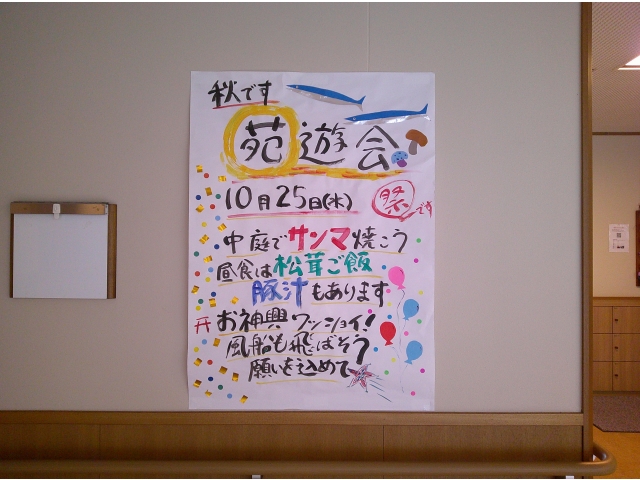 秋です
苑遊会
10月25日(木)
祭です
中庭でサンマ焼こう
昼食は松茸ご飯
豚汁もあります
お神輿ワッショイ!
風船も飛ばそう
願いを込めて